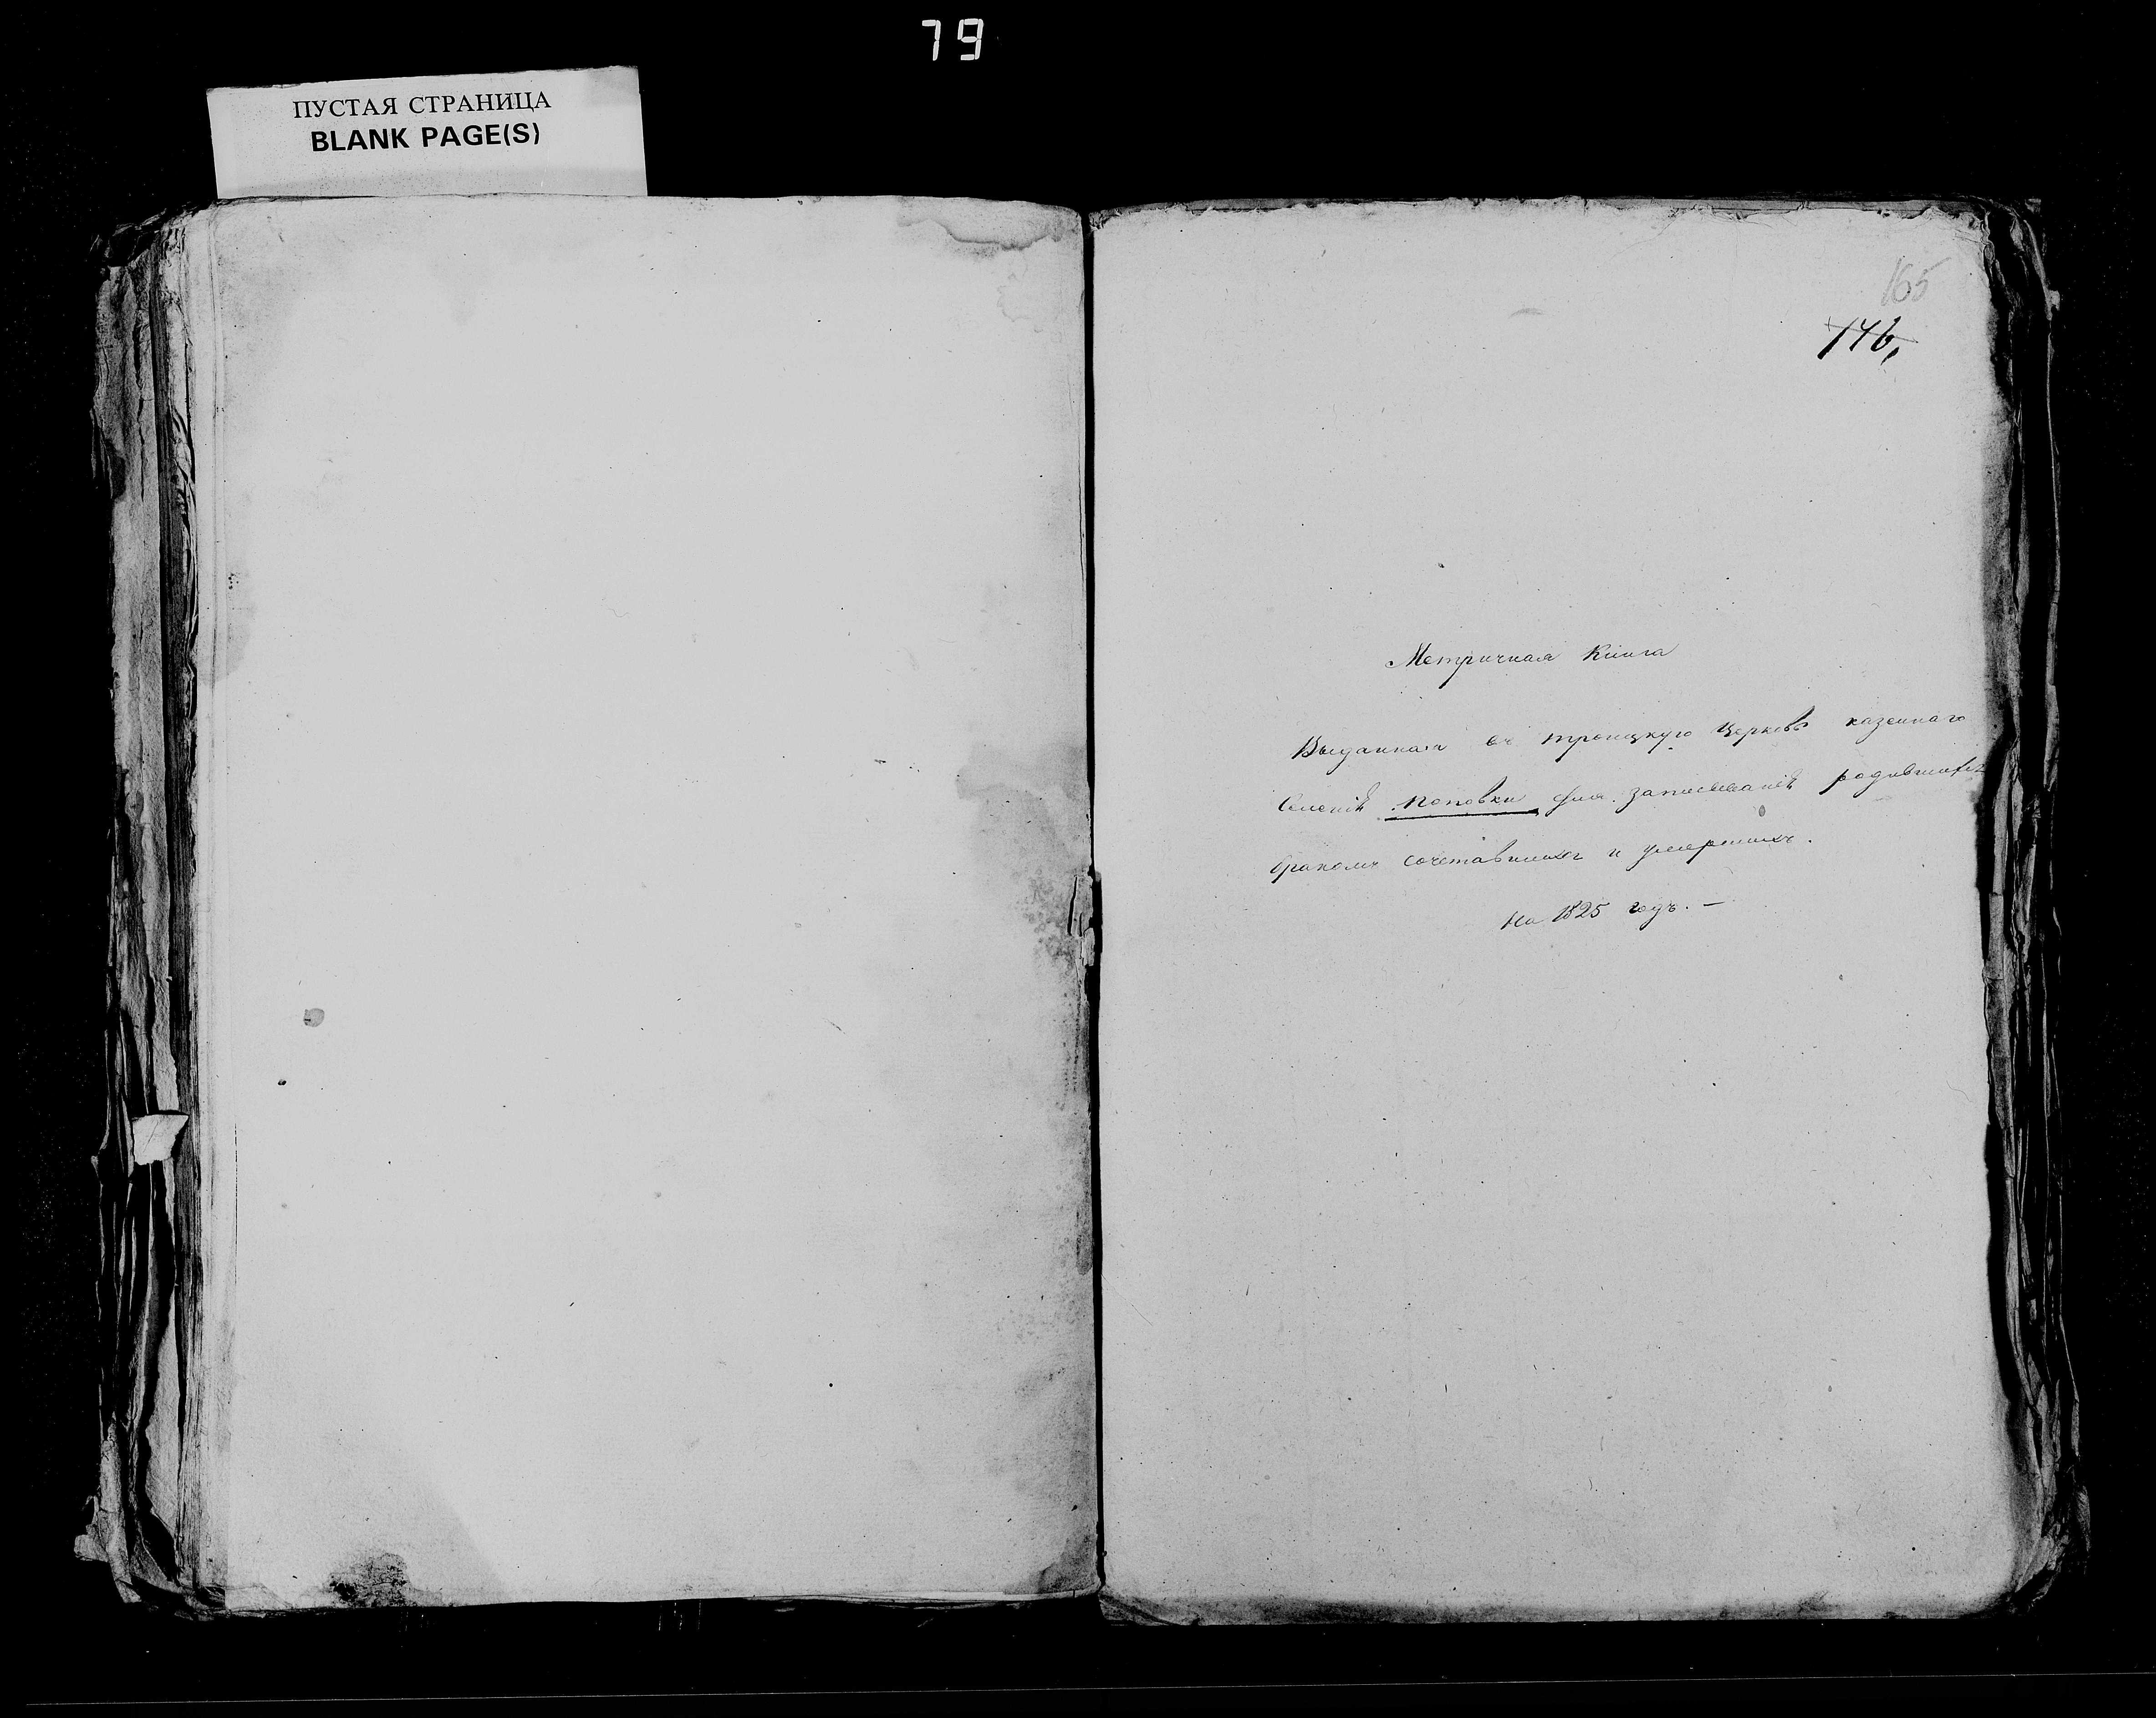 79
ПУСТАЯ СТРАНИЦА
BLANK PAGE(S)
165
146,
Метричная Книга
Выданная въ троицкую Церковь казеннаго
Селенія Поповки для записыванія родившихся
бракомъ сочетавшихся и умершихъ.
На 1825 годъ. —